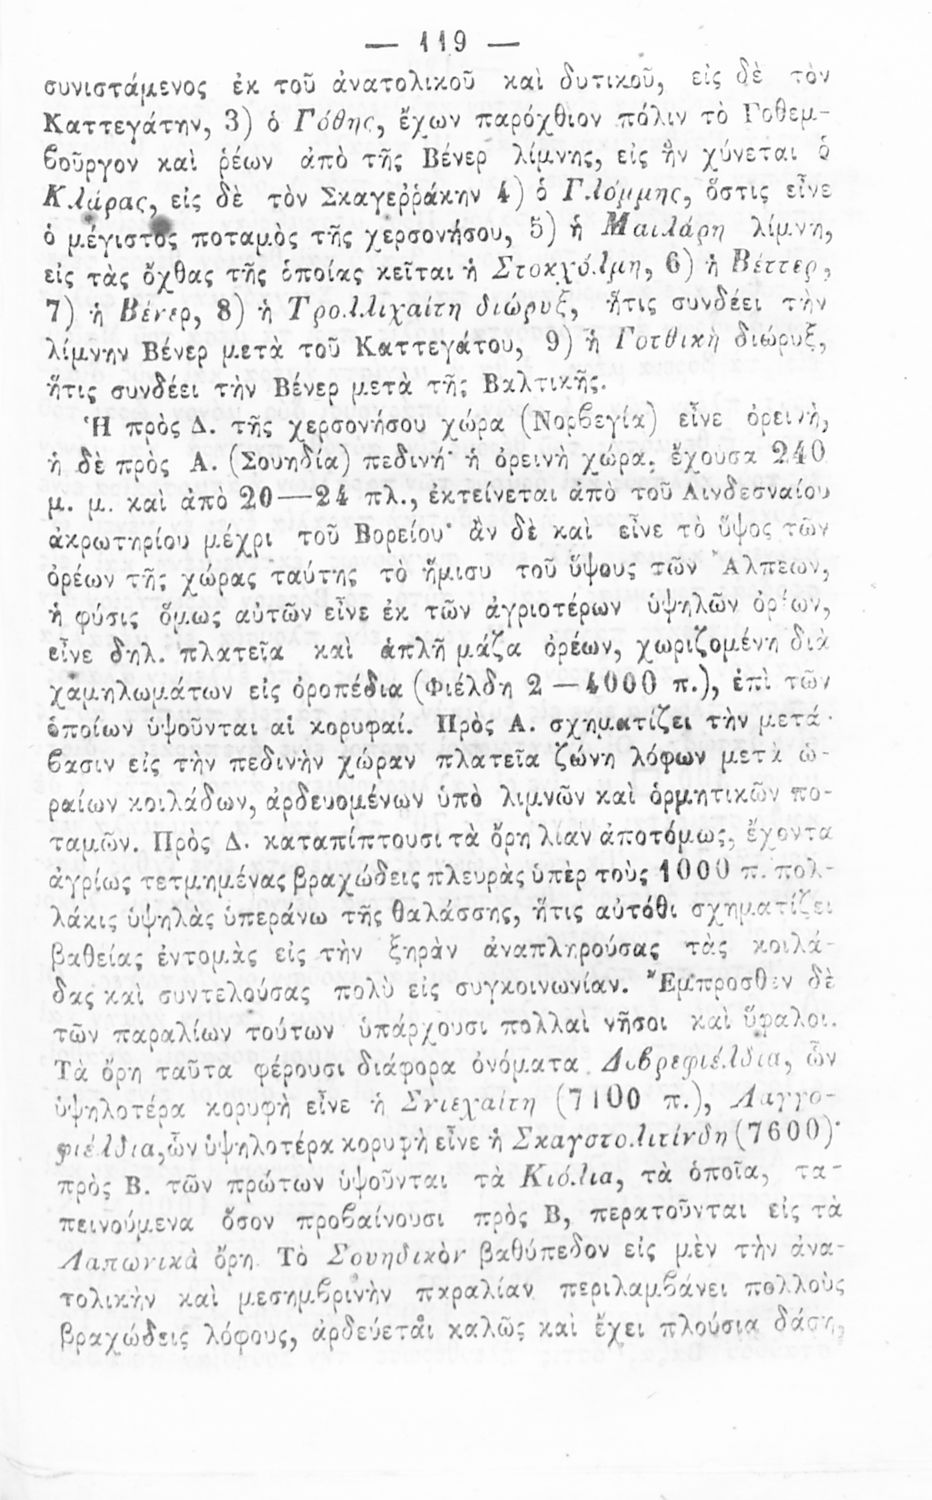 — 119 —
συνιστάμενος ἐκ τοῦ ἀνατολικοῦ καὶ δυτικοῦ, εἰς δὲ τὸν
Καττεγάτην, 3) ὁ Γόθης, ἔχων παρόχθιον πόλιν τὸ Γοθεμ-
βοῦργον καὶ ῥέων ἀπὸ τῆς Βένερ λίμνης, εἰς ἣν χύνεται ὁ
Κλάρας, εἰς δὲ τὸν Σκαγεῤῥάκην 4) ὁ Γλόμμης, ὅστις εἶνε
ὁ μέγιστος ποταμὸς τῆς χερσονήσου, 5) ἡ Μαιλάρη λίμνη,
εἰς τὰς ὄχθας τῆς ὁποίας κεῖται ἡ Στοκχόλμη, 6) ἡ Βέττερ,
7) ἡ Βένερ, 8) ἡ Τρολλιχαίτη διώρυξ, ἥτις συνδέει τὴν
λίμνην Βένερ μετὰ τοῦ Καττεγάτου, 9) ἡ Γοτθικὴ διώρυξ,
ἥτις συνδέει τὴν Βένερ μετὰ τῆς Βαλτικῆς.
Ἡ πρὸς Δ. τῆς χερσονήσου χώρα (Νορβεγία) εἶνε ὀρεινὴ,
ἡ δὲ πρὸς Α. (Σουηδία) πεδινή· ἡ ὀρεινὴ χώρα, ἔχουσα 240
μ. μ. καὶ ἀπὸ 20—24 πλ., ἐκτείνεται ἀπὸ τοῦ Λινδεσναίου
ἀκρωτηρίου μέχρι τοῦ Βορείου· ἂν δὲ καὶ εἶνε τὸ ὕψος τῶν
ὀρέων τῆς χώρας ταύτης τὸ ἥμισυ τοῦ ὕψους τῶν Ἄλπεων,
ἡ φύσις ὅμως αὐτῶν εἶνε ἐκ τῶν ἀγριοτέρων ὑψηλῶν ὀρέων,
εἶνε δηλ. πλατεῖα καὶ ἁπλῆ μάζα ὀρέων, χωριζομένη διὰ
χαμηλωμάτων εἰς ὀροπέδια (Φιέλδη 2 — 4000 π.), ἐπὶ τῶν
ὁποίων ὑψοῦνται αἱ κορυφαί. Πρὸς Α. σχηματίζει τὴν μετά-
βασιν εἰς τὴν πεδινὴν χώραν πλατεῖα ζώνη λόφων μετὰ ὡ-
ραίων κοιλάδων, ἀρδευομένων ὑπὸ λιμνῶν καὶ ὁρμητικῶν πο-
ταμῶν. Πρὸς Δ. καταπίπτουσι τὰ ὄρη λίαν ἀποτόμως, ἔχοντα
ἀγρίως τετμημένας βραχώδεις πλευρὰς ὑπὲρ τοὺς 1000 π. πολ-
λάκις ὑψηλὰς ὑπεράνω τῆς θαλάσσης, ἥτις αὐτόθι σχηματίζει
βαθείας ἐντομὰς εἰς τὴν ξηρὰν ἀναπληρούσας τὰς κοιλά-
δας καὶ συντελούσας πολὺ εἰς συγκοινωνίαν. Ἔμπροσθεν δὲ
τῶν παραλίων τούτων ὑπάρχουσι πολλαὶ νῆσοι καὶ ὕφαλοι.
Τὰ ὄρη ταῦτα φέρουσι διάφορα ὀνόματα. Δοβρεφιέλδια, ὧν
ὑψηλοτέρα κορυφὴ εἶνε ἡ Σνιεχαίτη (7100 π.), Λαγγο-
φιέλδια, ὧν ὑψηλοτέρα κορυφὴ εἶνε ἡ Σκαγστολιτίνδη (7600)·
πρὸς Β. τῶν πρώτων ὑψοῦνται τὰ Κιόλια, τὰ ὁποῖα, τα-
πεινούμενα ὅσον προβαίνουσι πρὸς Β, περατοῦνται εἰς τὰ
Λαπωνικὰ ὄρη. Τὸ Σουηδικὸν βαθύπεδον εἰς μὲν τὴν ἀνα-
τολικὴν καὶ μεσημβρινὴν παραλίαν περιλαμβάνει πολλοὺς
βραχώδεις λόφους, ἀρδεύεται καλῶς καὶ ἔχει πλούσια δάση,